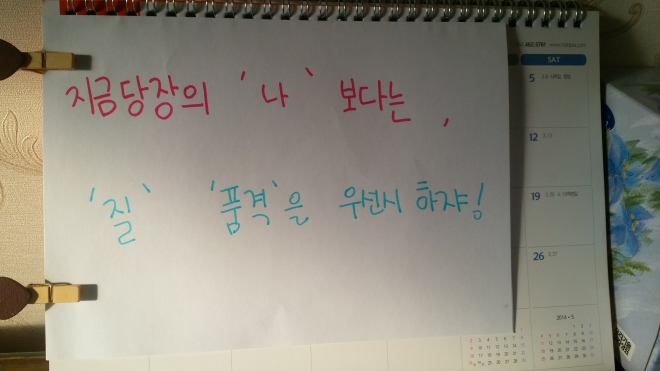 지금당장의 '나' 보다는,
'질' '품격'을 우선시 하쟈!
SAT
5
12
19
26
2014 • 5